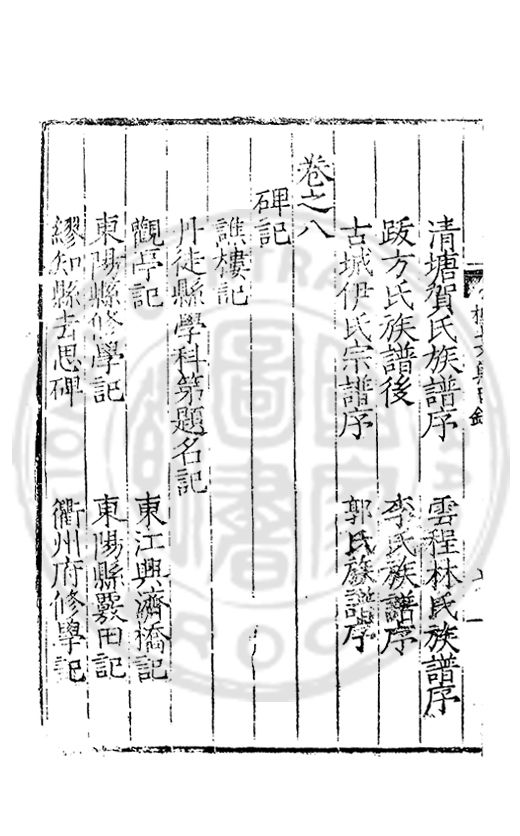 清塘賀氏族譜序 雲程林氏族譜序
跋方氏族譜後 李氏族譜序
古城伊氏宗譜序 郭氏族譜序
卷之八
碑記
譙樓記
丹徒縣學科第題名記
觀亭記 東江興濟橋記
東陽縣修學記 東陽縣覈田記
繆知縣去思碑 衢州府修學記